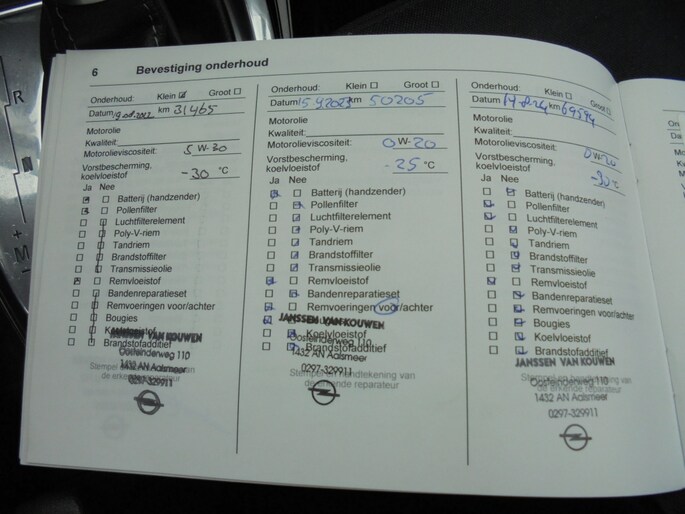 6 Bevestiging onderhoud
Onderhoud: Klein Groot
Datum km 31465
Motorolie
Kwaliteit:
Motorolieviscositeit: 5 W-30
Vorstbescherming,
koelvloeistof -30 °C
Ja Nee
Batterij (handzender)
Pollenfilter
Luchtfilterelement
Poly-V-riem
Tandriem
Brandstoffilter
Transmissieolie
Remvloeistof
Bandenreparatieset
Remvoeringen voor/achter
Bougies
Koelvloeistof
Brandstofadditief
JANSSEN VAN KOUWEN
Oosteinderweg 110
1432 AN Aalsmeer
0297-329911
Stempel en handtekening van
de erkende reparateur
Onderhoud: Klein Groot
Datum 15 9 2023 km 50205
Motorolie
Kwaliteit:
Motorolieviscositeit: 0 W-20
Vorstbescherming,
koelvloeistof -25 °C
Ja Nee
Batterij (handzender)
Pollenfilter
Luchtfilterelement
Poly-V-riem
Tandriem
Brandstoffilter
Transmissieolie
Remvloeistof
Bandenreparatieset
Remvoeringen voor/achter
Bougies
Koelvloeistof
Brandstofadditief
JANSSEN VAN KOUWEN
Oosteinderweg 110
1432 AN Aalsmeer
0297-329911
Stempel en handtekening van
de erkende reparateur
Onderhoud: Klein Groot
Datum km 69594
Motorolie
Kwaliteit:
Motorolieviscositeit: 0W-20
Vorstbescherming,
koelvloeistof -30°C
Ja Nee
Batterij (handzender)
Pollenfilter
Luchtfilterelement
Poly-V-riem
Tandriem
Brandstoffilter
Transmissieolie
Remvloeistof
Bandenreparatieset
Remvoeringen voor/achter
Bougies
Koelvloeistof
Brandstofadditief
JANSSEN VAN KOUWEN
Oosteinderweg 110
1432 AN Aalsmeer
0297-329911
Stempel en handtekening van
de erkende reparateur
R
N
+
M